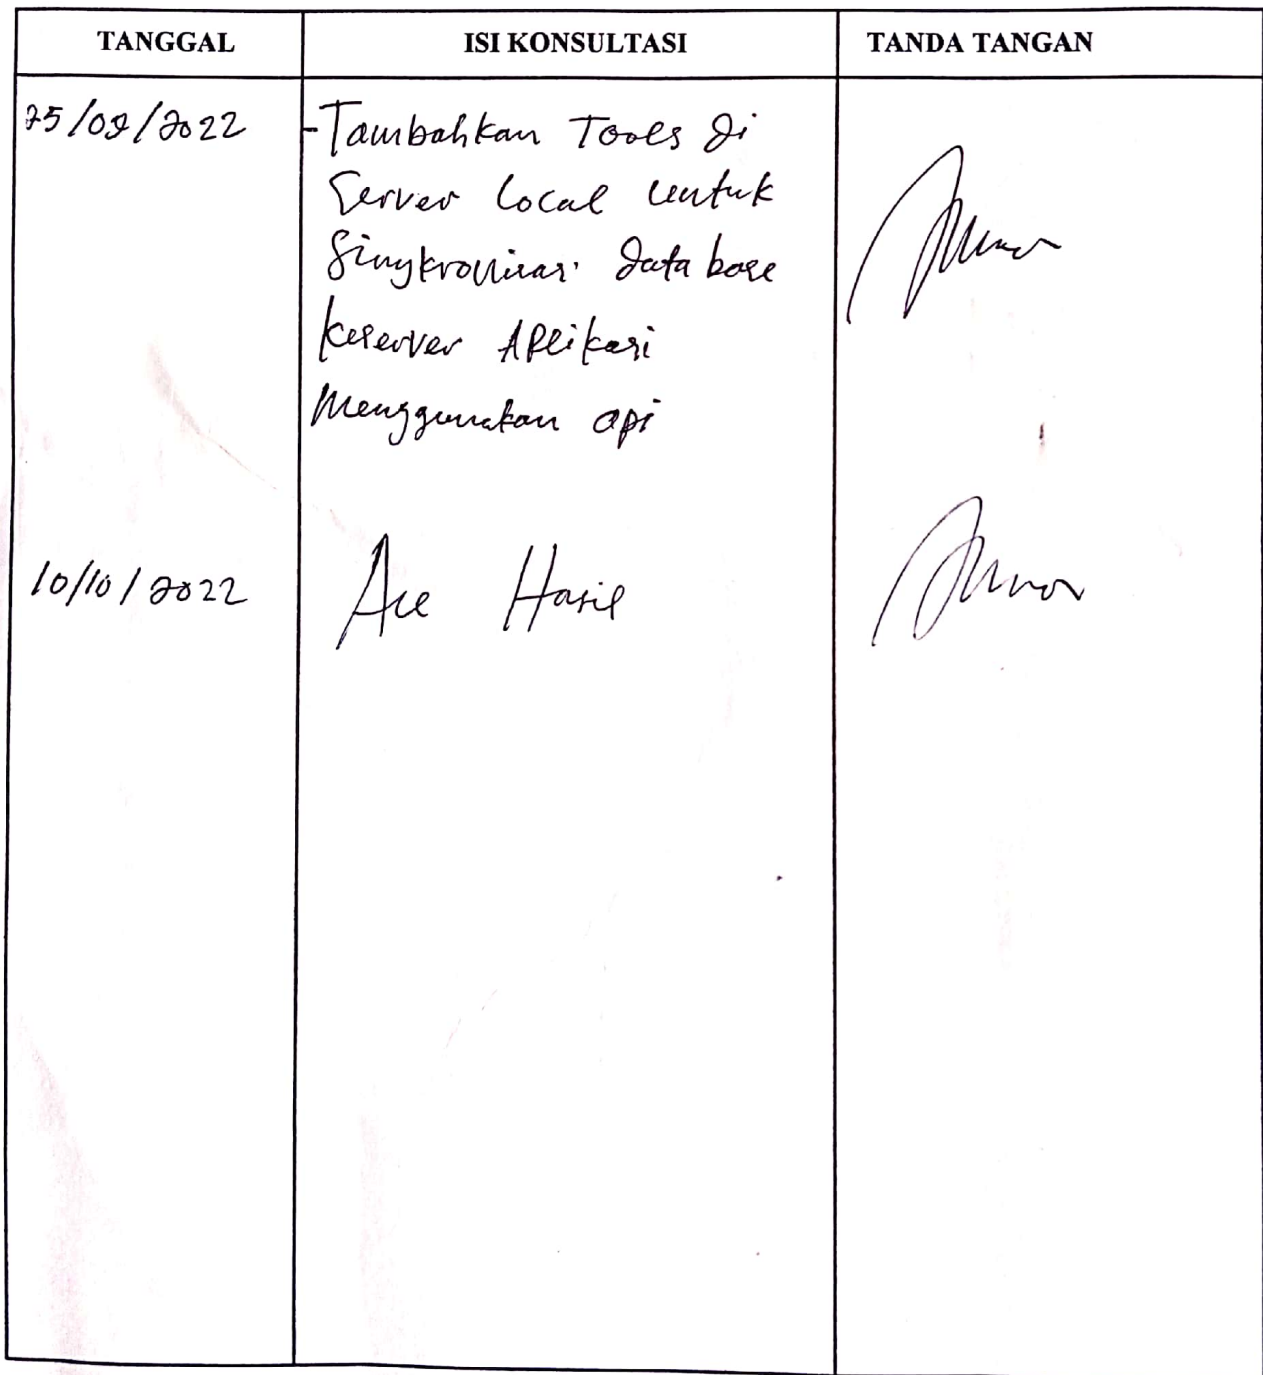 TANGGAL ISI KONSULTASI TANDA TANGAN
25/09/2022 - Tambahkan Tools di
Server local untuk
Singkronisasi data base
keserver Aplikasi
Menggunakan api
10/10/2022 Acc Hasil